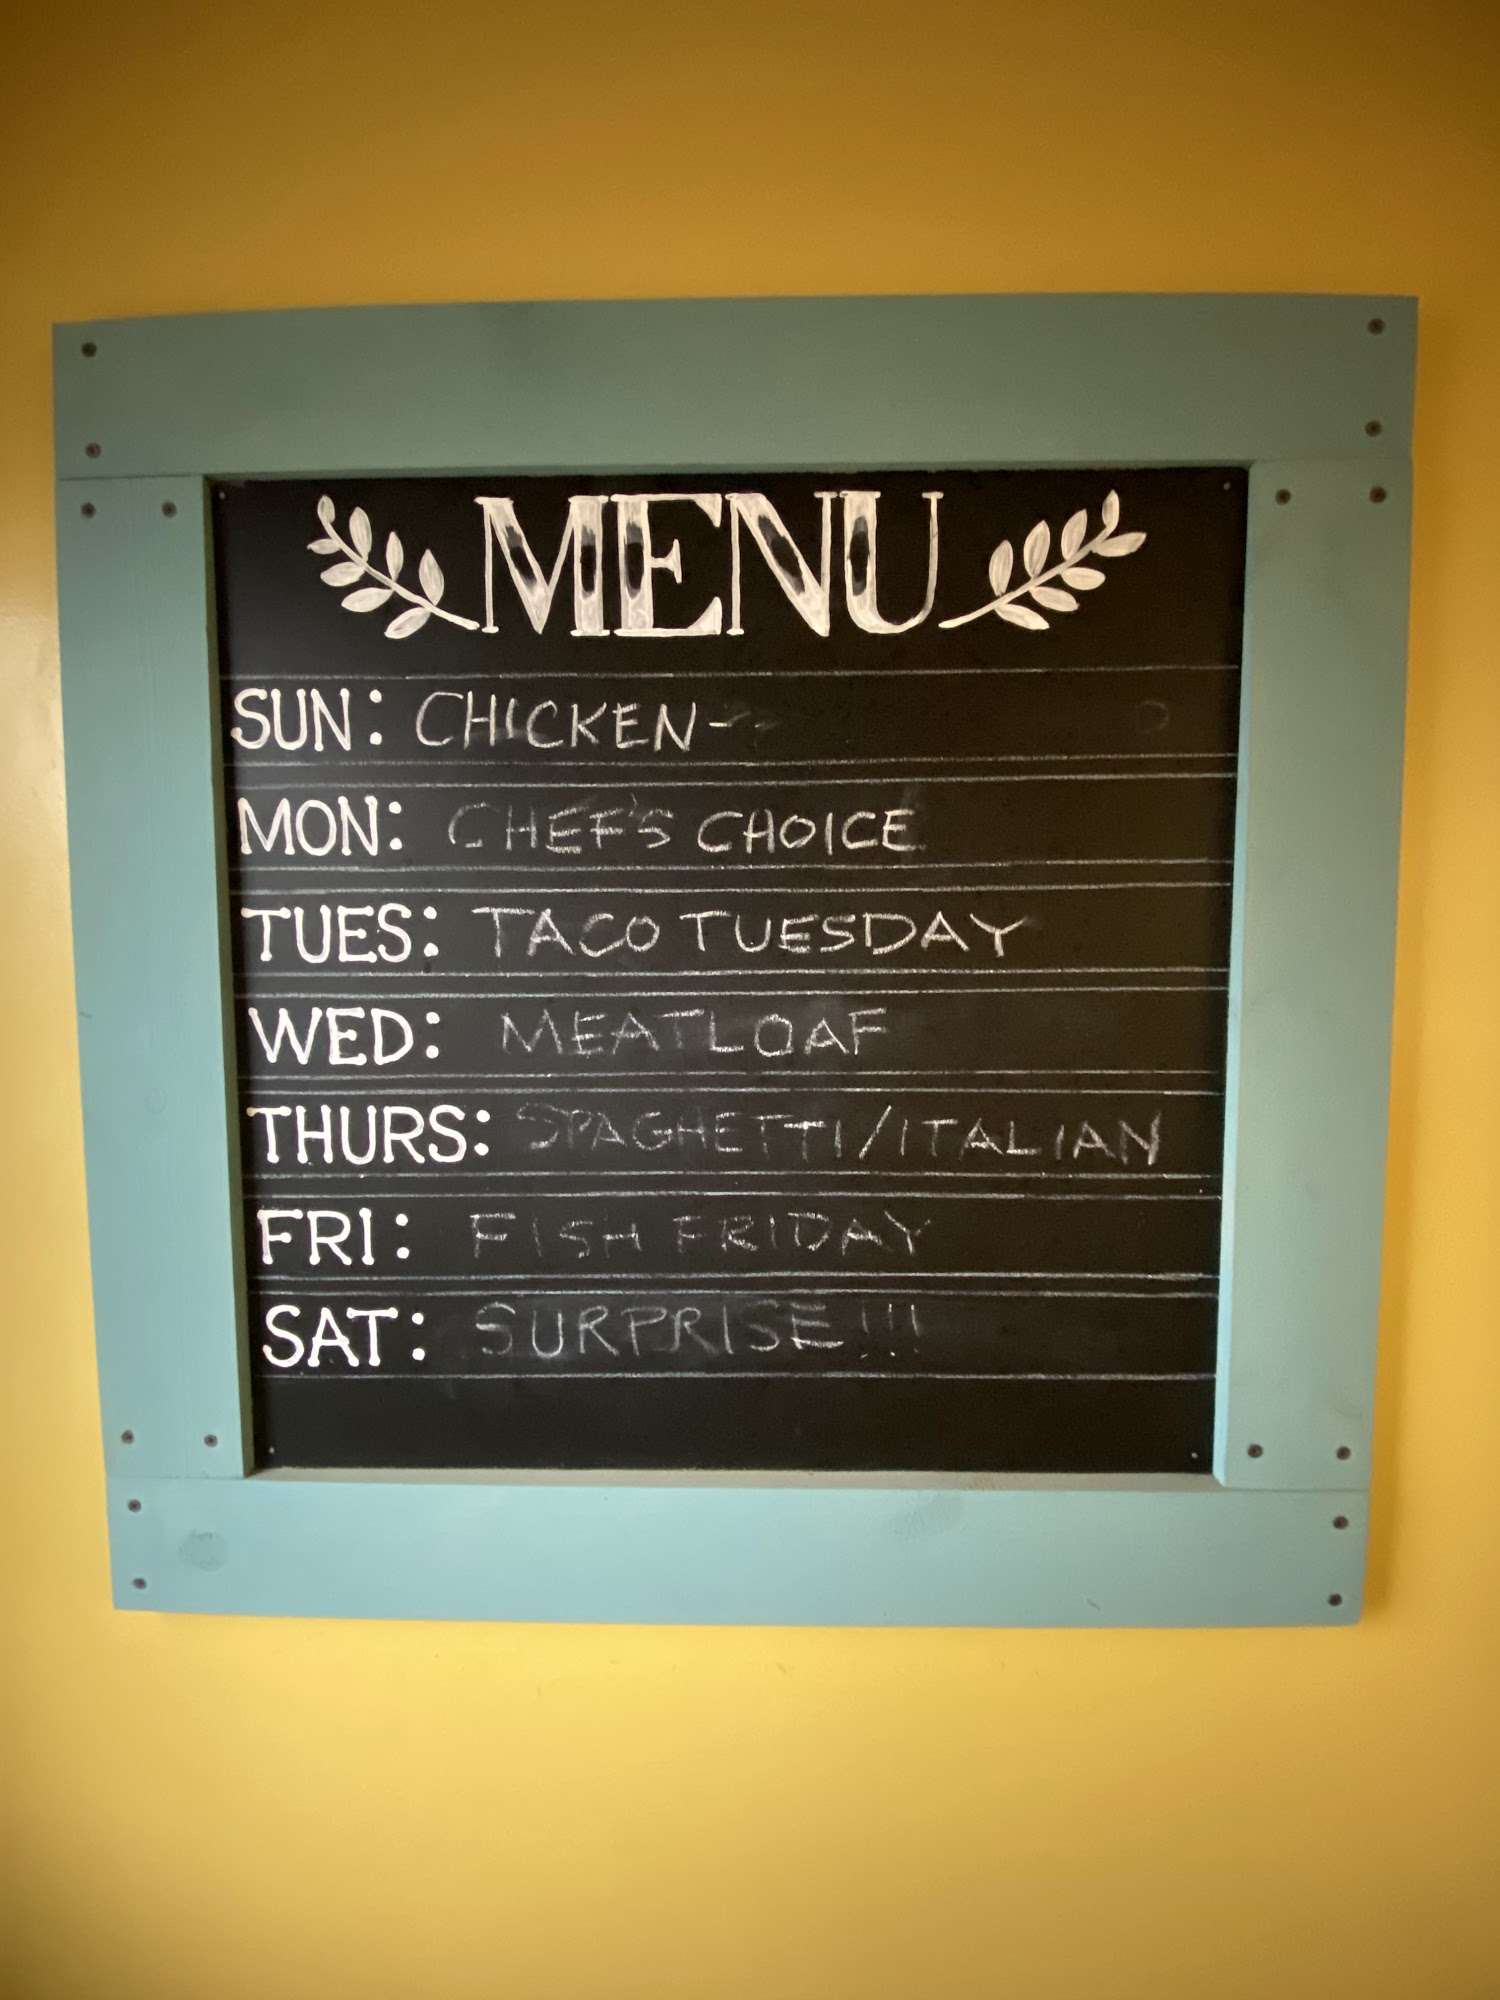 MENU
SUN: CHICKEN-
MON: CHEF'S CHOICE
TUES: TACO TUESDAY
WED: MEATLOAF
THURS: SPAGHETTI/ITALIAN
FRI: FISH FRIDAY
SAT: SURPRISE!!!